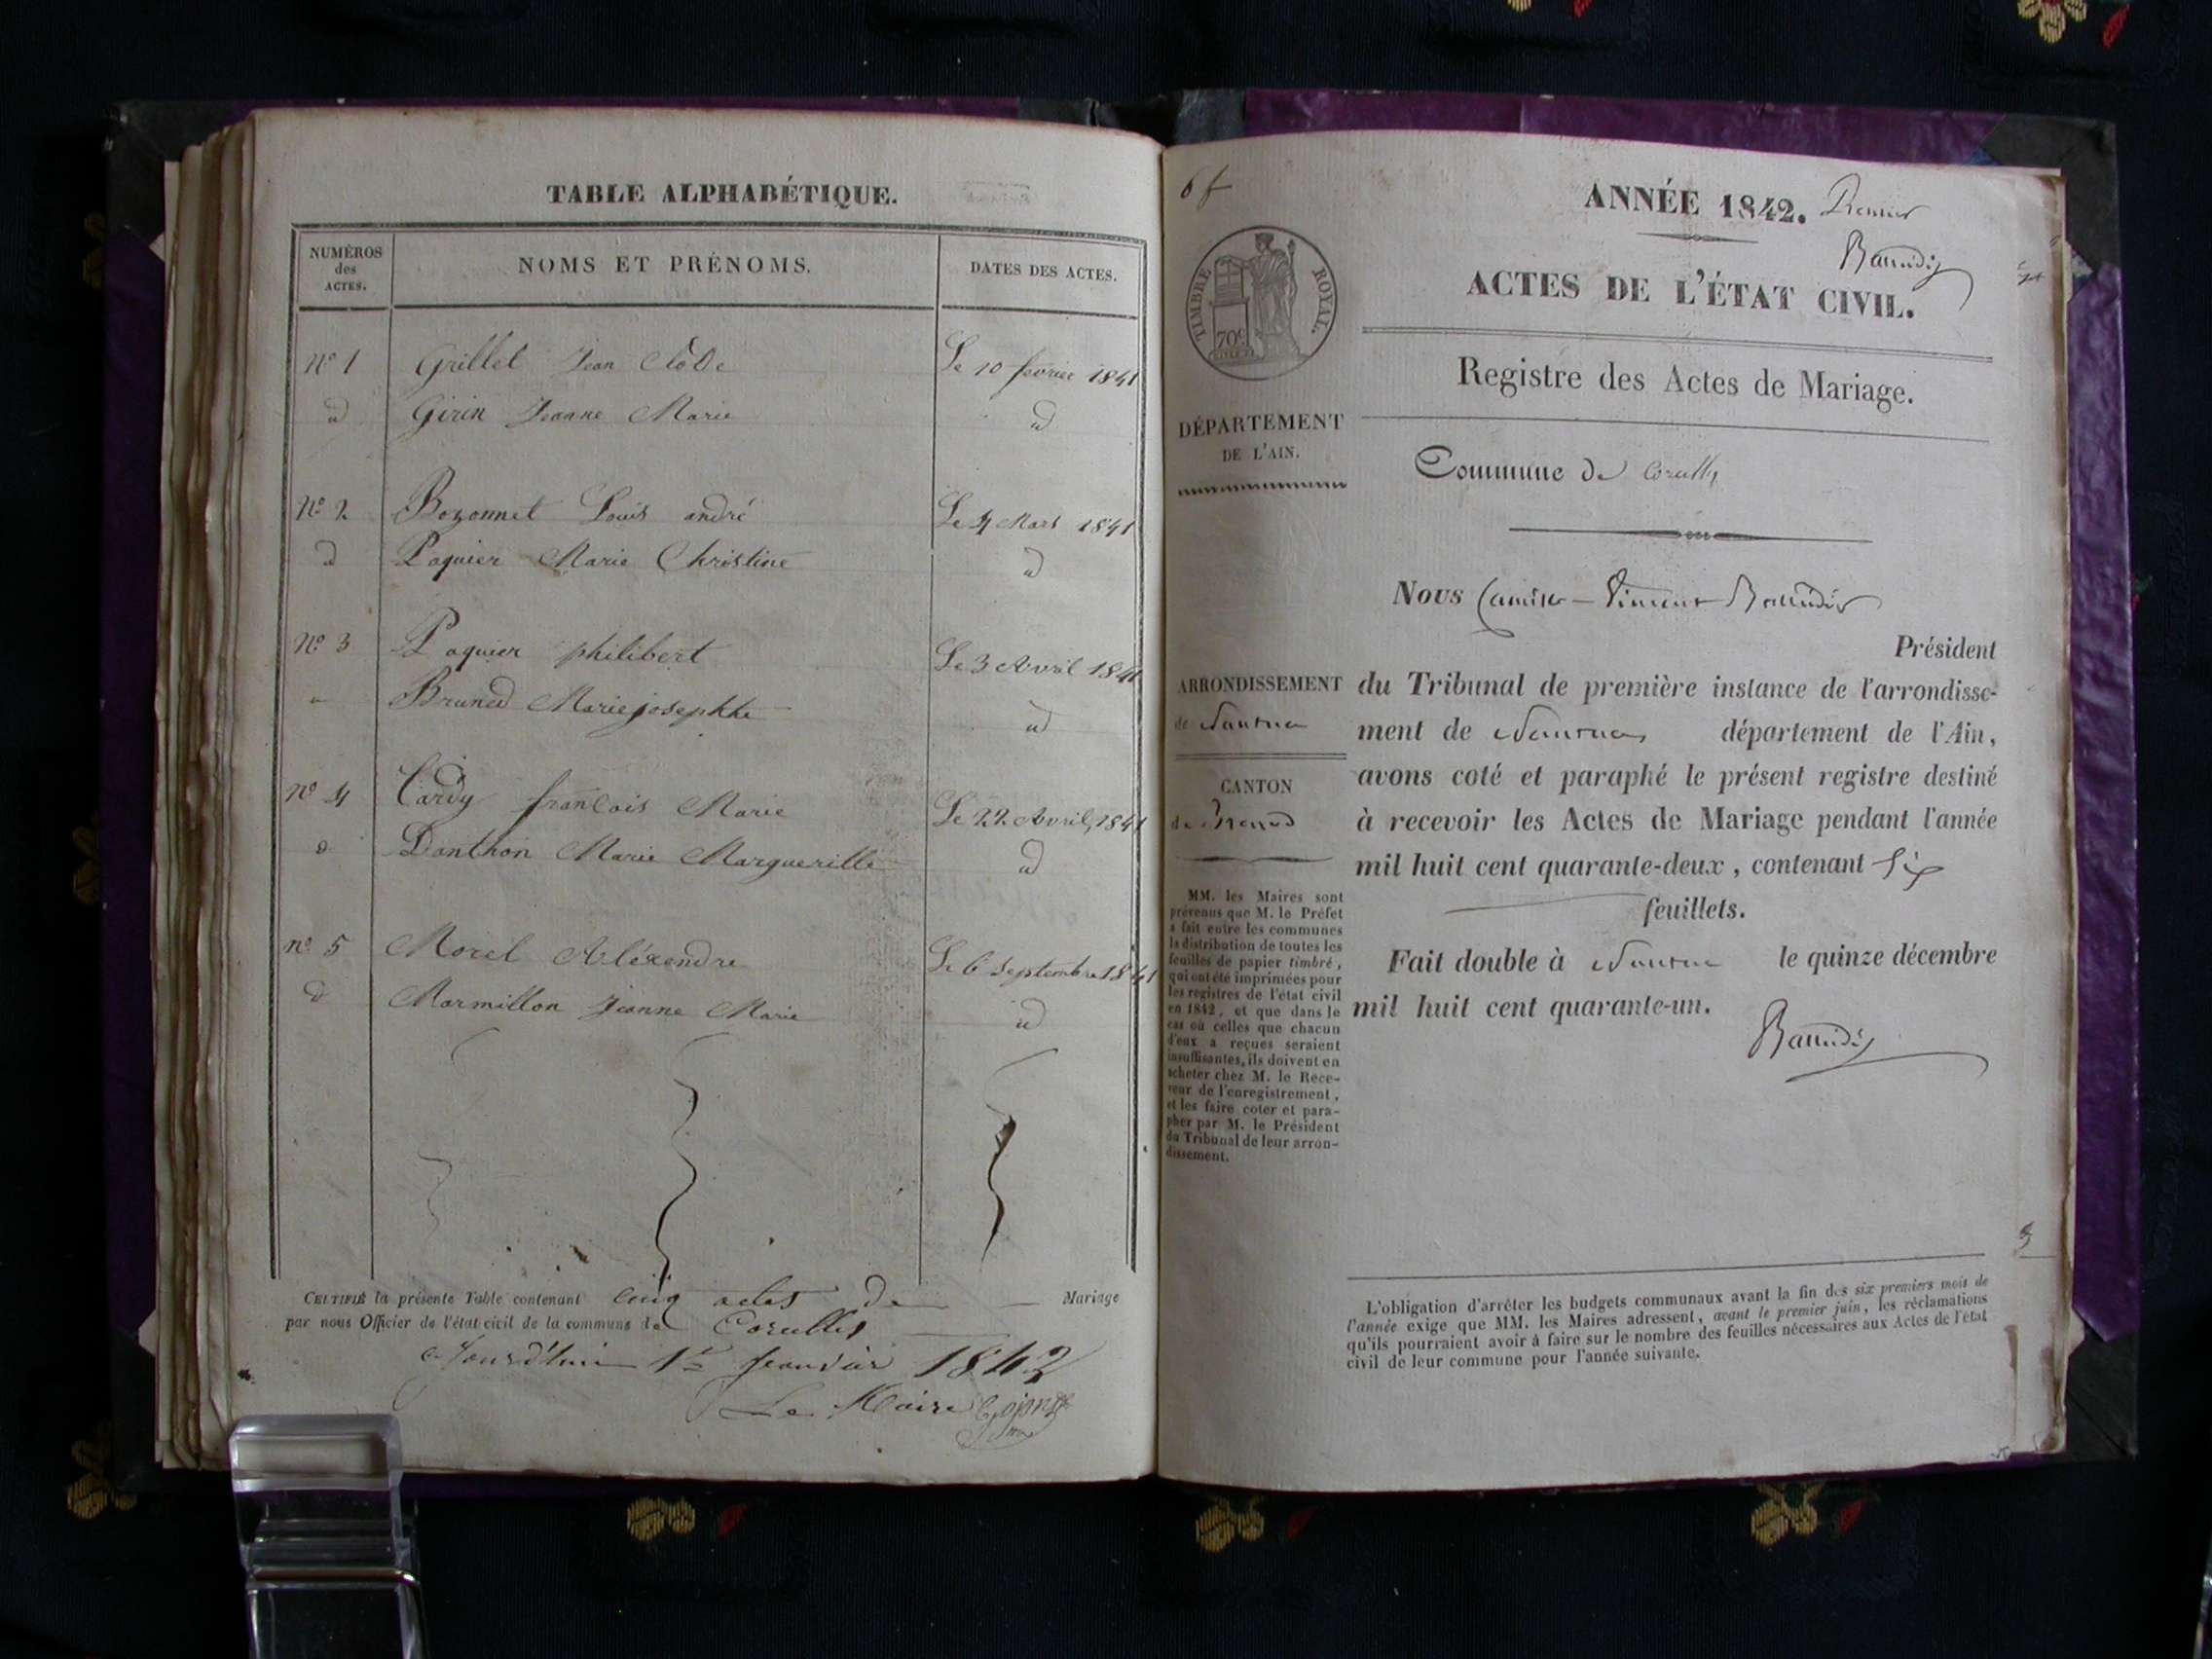 TABLE ALPHABÉTIQUE.
NUMÉROS
des
ACTES.
NOMS ET PRÉNOMS.
DATES DES ACTES.
N° 1 Grillet Jean Clôde Le 10 fevrier 1841
id Girin Jeanne Marie id
N° 2 Bozonnet Louis andré Le 4 Mars 1841
id Paquier Marie Christine id
N° 3 Paquier philibert Le 3 Avril 1841
Bruned Marie josephte id
N° 4 Cardy francois Marie Le 22 Avril 1841
id Danthon Marie Marguerille id
n° 5 Morel Aléxendre Le 6 Septembre 1841
id Marmillon Jeanne Marie id
CERTIFIÉ la présente Table contenant cinq actes de Mariage
par nous Officier de l'état civil de la commune de Corcelles
1er 1842
Le Maire
6 f
ANNÉE 1842. Premier
ACTES DE L'ÉTAT CIVIL.
TIMBRE ROYAL.
70c
Registre des Actes de Mariage.
DÉPARTEMENT
DE L'AIN.
Commune de
Nous
Président
ARRONDISSEMENT
de Nantua
du Tribunal de première instance de l'arrondisse-
ment de Nantua département de l'Ain,
CANTON
de Brenod
avons coté et paraphé le présent registre destiné
à recevoir les Actes de Mariage pendant l'année
mil huit cent quarante-deux, contenant Six
feuillets.
Fait double à Nantua le quinze décembre
mil huit cent quarante-un.
MM. les Maires sont
prévenus que M. le Préfet
a fait entre les communes
la distribution de toutes les
feuilles de papier timbré,
qui ont été imprimées pour
les registres de l'état civil
en 1842, et que dans le
cas où celles que chacun
d'eux a reçues seraient
insuffisantes, ils doivent en
acheter chez M. le Rece-
veur de l'enregistrement,
et les faire coter et para-
pher par M. le Président
du Tribunal de leur arron-
dissement.
L'obligation d'arrêter les budgets communaux avant la fin des six premiers mois de
l'année exige que MM. les Maires adressent, avant le premier juin, les réclamations
qu'ils pourraient avoir à faire sur le nombre des feuilles nécessaires aux Actes de l'état
civil de leur commune pour l'année suivante.